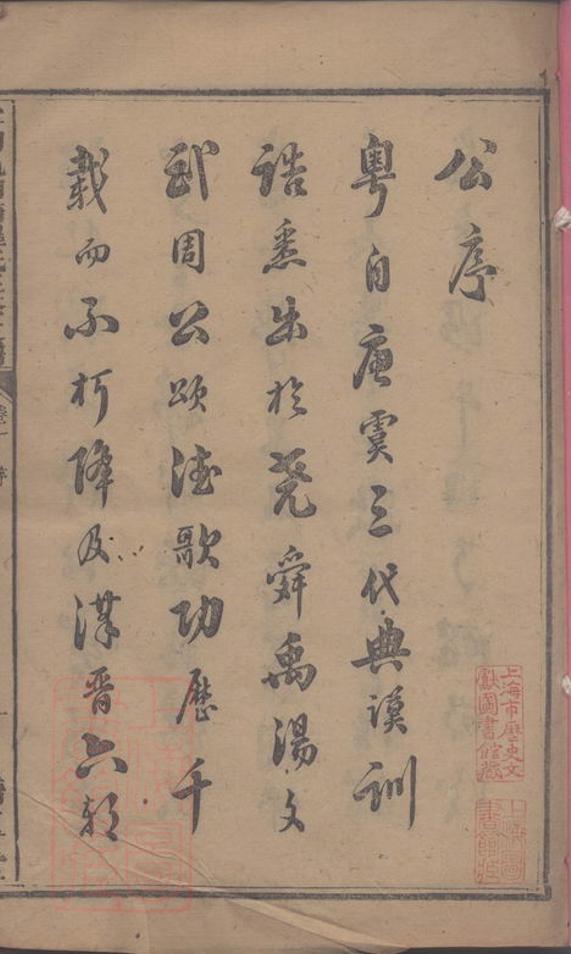 公序
粤自唐虞三代典謨訓
誥悉出於堯舜禹湯文
武周公頌德歌功歷千
載而不朽降及漢晉六朝
上海市歷史文
獻圖書館藏
上海圖
書館藏